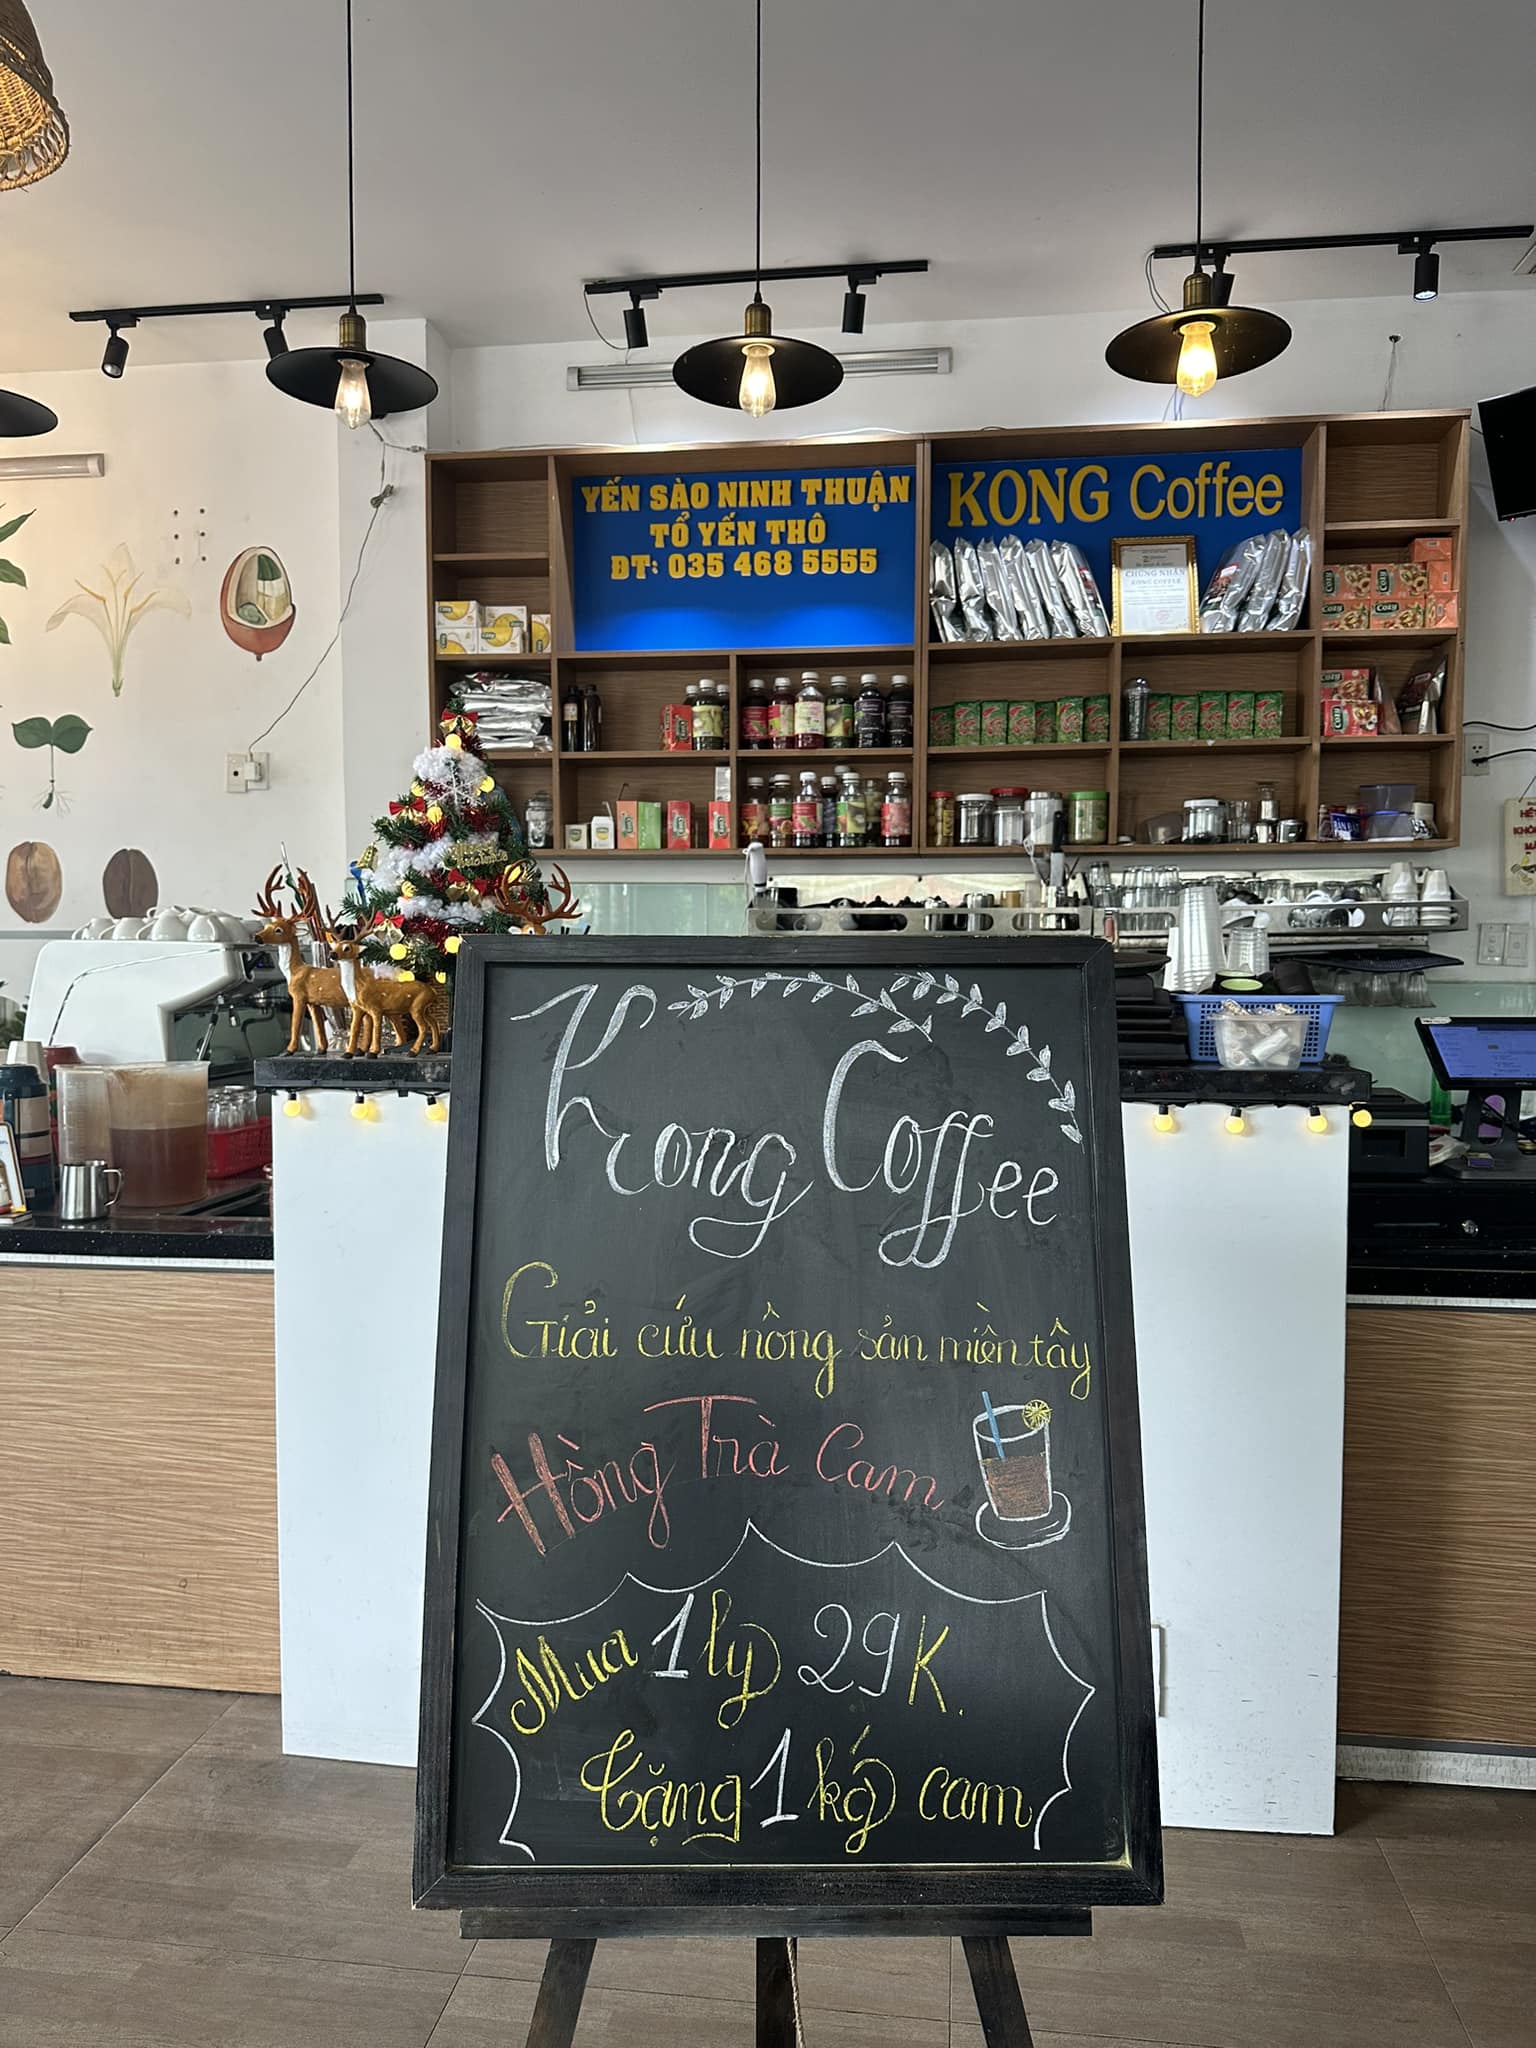 YẾN SÀO NINH THUẬN
TỔ YẾN THÔ
ĐT: 035 468 5555
KONG Coffee
CHỨNG NHẬN
KONG COFFEE
Cozy
Cozy
Cozy
Cozy
Kong Coffee
Giải cứu nông sản miền tây
Hồng Trà Cam
Mua 1 ly 29K.
Tặng 1 ký cam